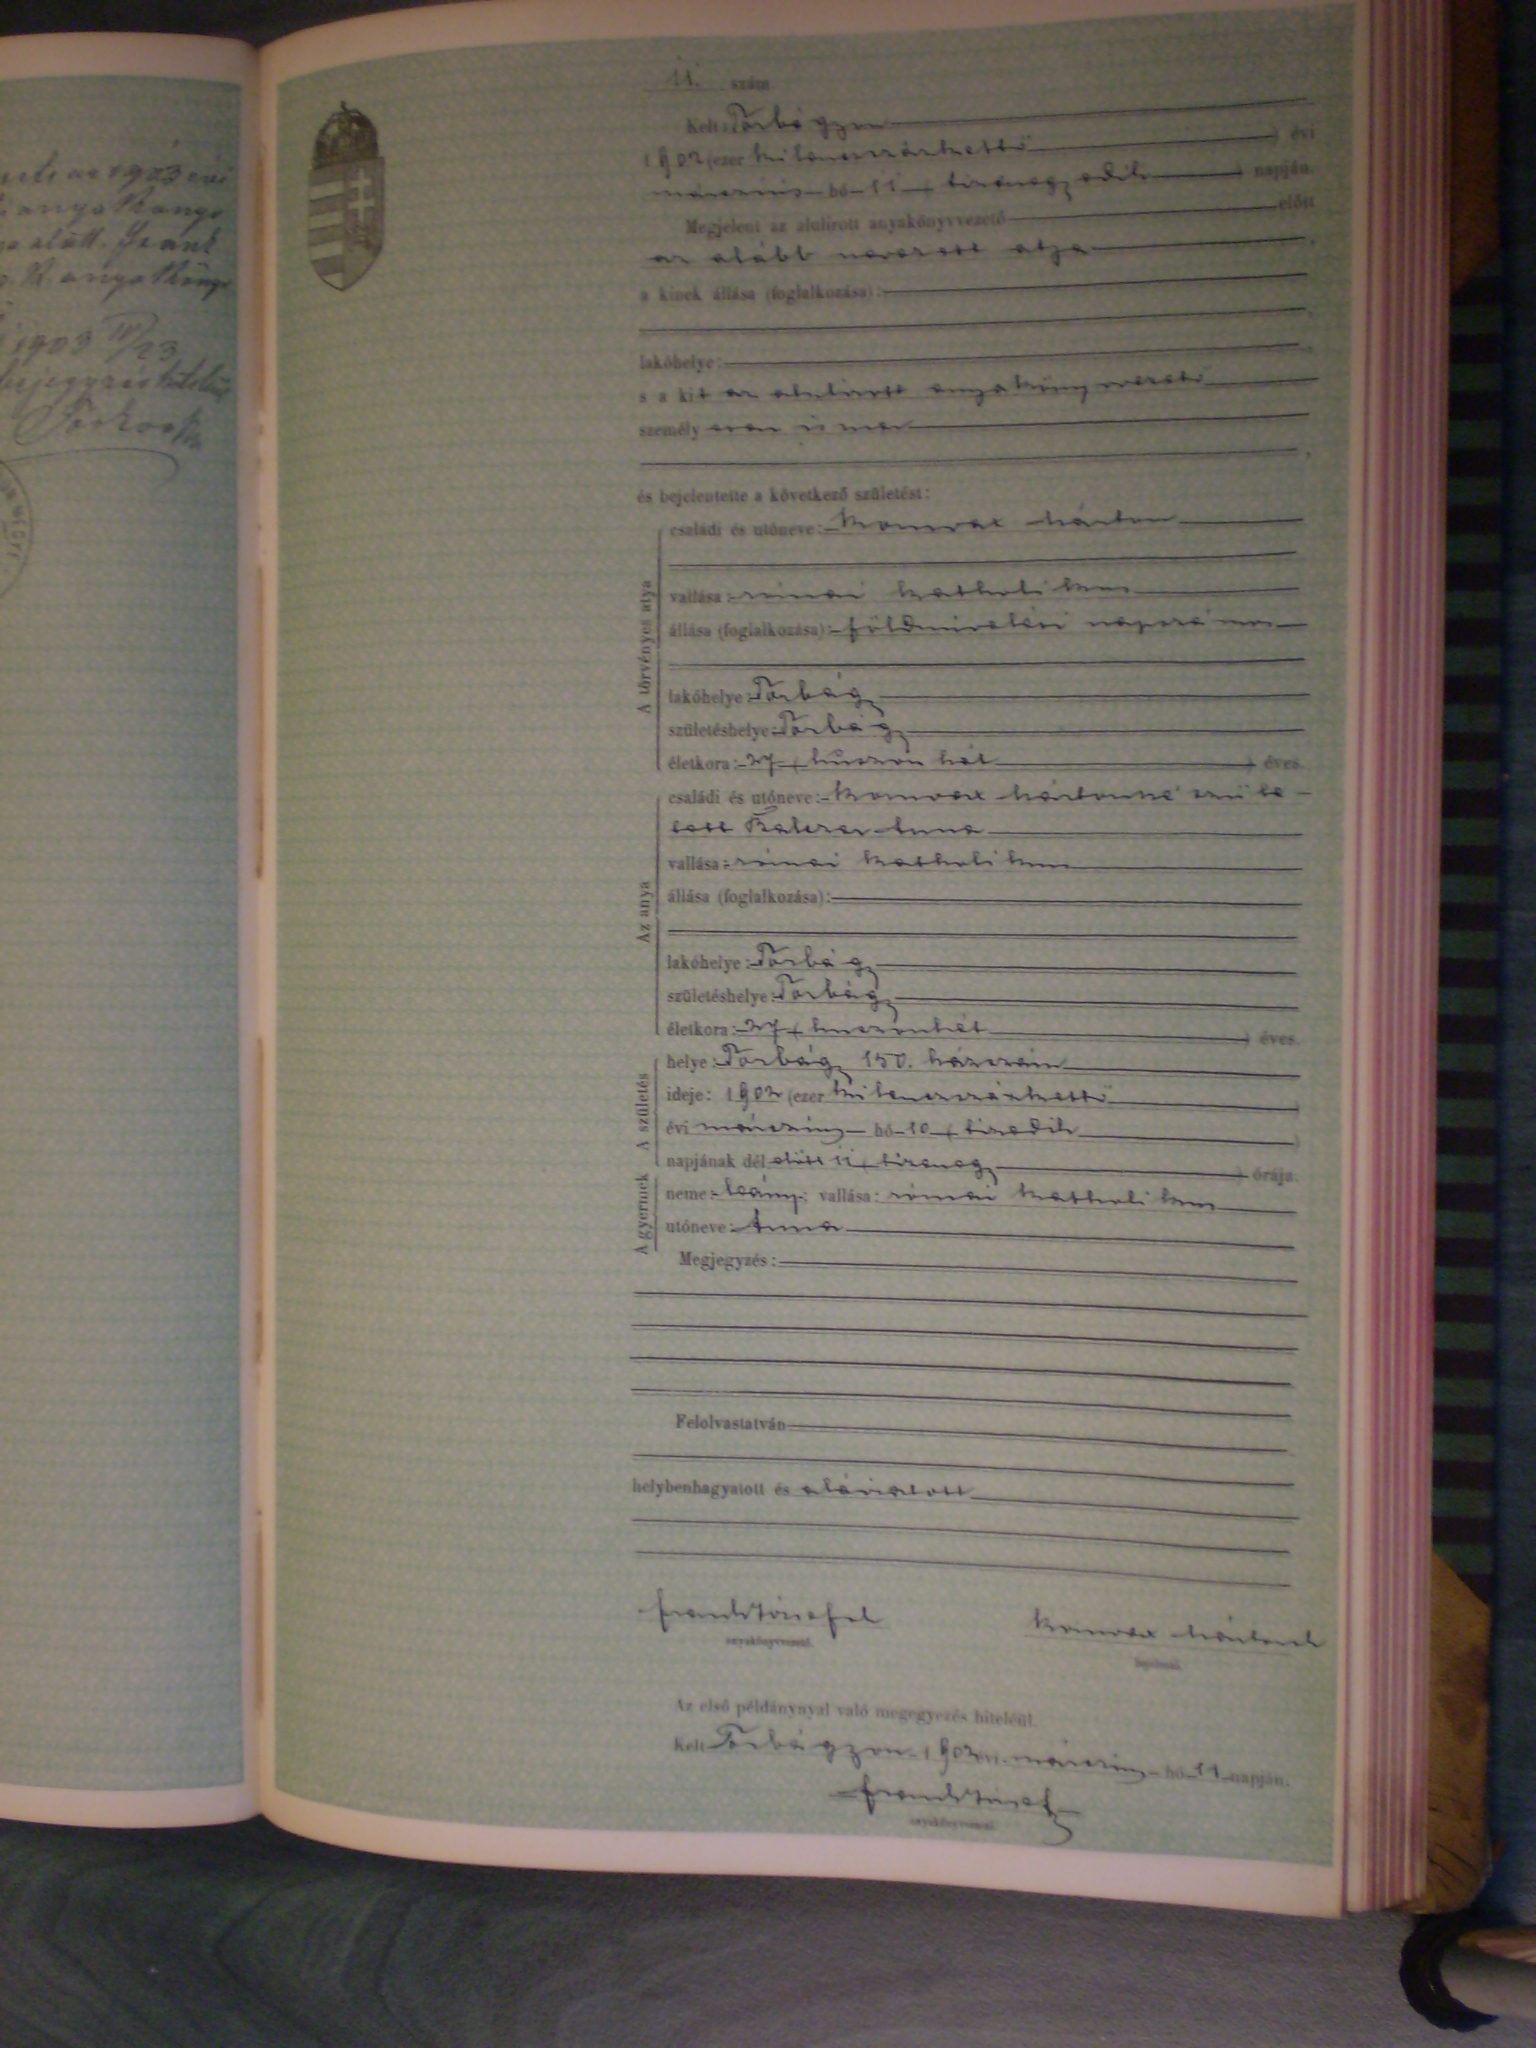 1903 IV/23
11. szám
Kelt Torbágyon
1902 (ezer kilencszázkettő) évi
márczius hó 11 (tizenegyedik) napján.
Megjelent az alulírott anyakönyvvezető előtt
az alább nevezett atya,
a kinek állása (foglalkozása):
lakóhelye:
s a kit az alulírott anyakönyvvezető
személyesen ismer
és bejelentette a következő születést:
A törvényes atya
családi és utóneve: Márton
vallása: római katholikus
állása (foglalkozása): földmivelési napszámos
lakóhelye: Torbágy
születéshelye: Torbágy
életkora: 27 (huszonhét) éves.
Az anya
családi és utóneve: Mártonné szüle-
tett Anna
vallása: római katholikus
állása (foglalkozása):
lakóhelye: Torbágy
születéshelye: Torbágy
életkora: 27 (huszonhét) éves.
A születés
helye: Torbágy 150. házszám
ideje: 1902 (ezer kilencszázkettő)
évi márczius hó 10 (tizedik)
napjának dél előtt 11 (tizenegy) órája.
A gyermek
neme: leány; vallása: római katholikus
utóneve: Anna
Megjegyzés:
Felolvastatván
helybenhagyatott és aláíratott
Frank József
anyakönyvvezető.
bejelentő.
Az első példánynyal való megegyezés hiteléül.
Kelt Torbágyon 1902 évi márczius hó 11 napján.
Frank József
anyakönyvvezető.